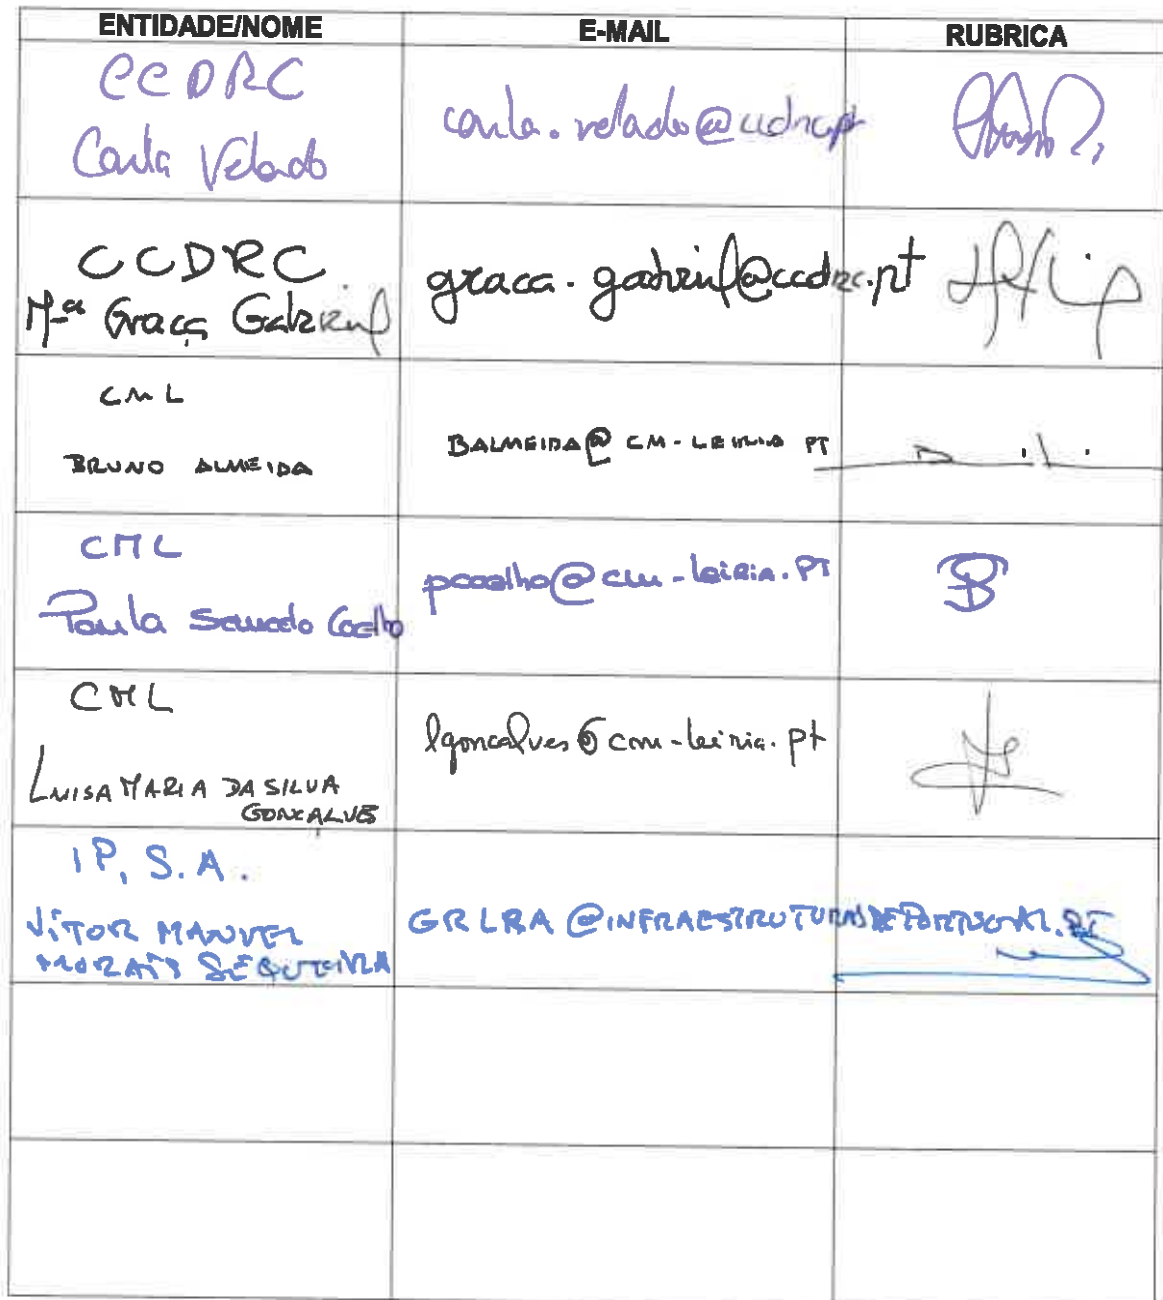 ENTIDADE/NOME E-MAIL RUBRICA
CCDRC
Carla Velado
carla.velado@ccdrc.pt
CCDRC
Mª Graça Gabriel
graca.gabriel@ccdrc.pt
CML
BRUNO ALMEIDA
BALMEIDA@CM-LEIRIA PT
CML
Paula Coelho
pcoelho@cm-leiria.PT
CML
LUISA MARIA DA SILVA
GONÇALVES
lgoncalves@cm-leiria.pt
IP, S.A.
VÍTOR MANUEL
MORAIS SEQUEIRA
GRLRA@INFRAESTRUTURASDEPORTUGAL.PT